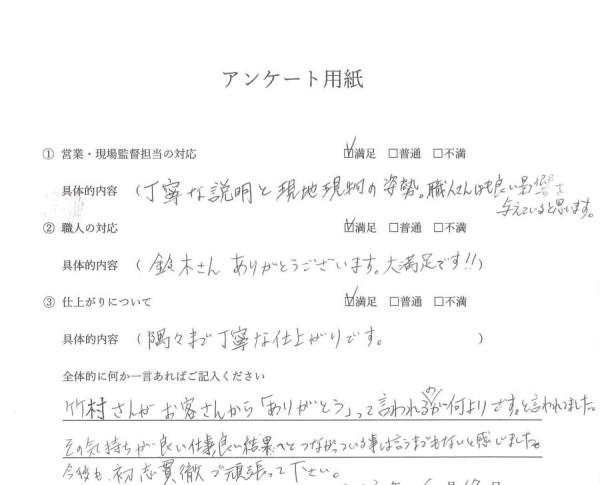 アンケート用紙
① 営業・現場監督担当の対応 ☑満足 □普通 □不満
具体的内容 (丁寧な説明と現地現物の姿勢。職人さんにも良い影響を
与えていると思います。
② 職人の対応 ☑満足 □普通 □不満
具体的内容 ( 鈴木さん ありがとうございます。大満足です!!)
③ 仕上がりについて ☑満足 □普通 □不満
具体的内容 (隅々まで丁寧な仕上がりです。 )
全体的に何か一言あればご記入ください
竹村さんが お客さんから「ありがとう」って言われるのが何よりです。と言われてました。
その気持ちが良い仕事良い結果へとつながっている事は言うまでもないと感じました。
今後も、初志貫徹で頑張って下さい。